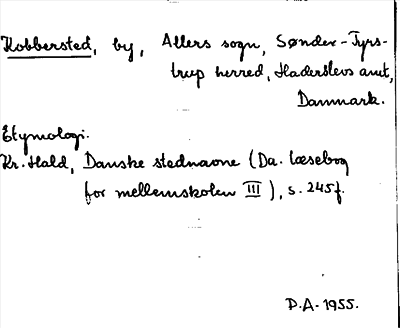 Kobbersted, by, Allers sogn, Sønder-Tyrs-
trup herred, Haderslevs amt,
Danmark.
Etymologi.
Kr. Hald, Danske stednavne (Da. læsebog
for mellemskolen III), s. 245f.
P.A. 1955.